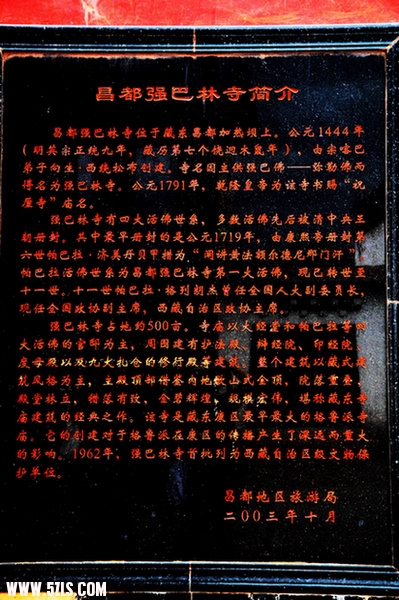 昌都强巴林寺简介
昌都强巴林寺位于藏东昌都加热坝上。公元1444年
(明英宗正统九年，藏历第七个绕迥木鼠年)、由宗喀巴
弟子向生·西绕松布创建。寺名因主供强巴佛——弥勒佛而
得名为强巴林寺。公元1791年，乾隆皇帝为该寺书赐“祝
厘寺”庙名。
强巴林寺有四大活佛世系，多数活佛先后被清中央王
朝册封。其中最早册封的是公元1719年，由康熙帝册封第
六世帕巴拉·济美丹贝甲措为，“阐讲黄法额尔德尼那门汗”
帕巴拉活佛世系为昌都强巴林寺第一大活佛，现已转世至
十一世。十一世帕巴拉·格列朗杰曾任全国人大副委员长，
现任全国政协副主席，西藏自治区政协主席，
强巴林寺占地约500亩。寺庙以大经堂和帕巴拉等四
大活佛的官邸为主，周围建有护法殿、辩经院、印经院、
度母殿以及九大扎仓的修行殿等建筑。整个建筑以藏式建
筑风格为主，主殿顶部饰签内地歇山式金顶，院落重叠，
殿堂林立，错落有致，金碧辉煌，规模宏伟，堪称藏东寺
庙建筑的经典之作。该寺是藏东康区最早最大的格鲁派寺
庙。它的创建对于格鲁派在康区的传播产生了深远而重大
的影响。1962年，强巴林寺首批列为西藏自治区级文物保
护单位。
昌都地区旅游局
二00三年十月
WWW.57LS.COM